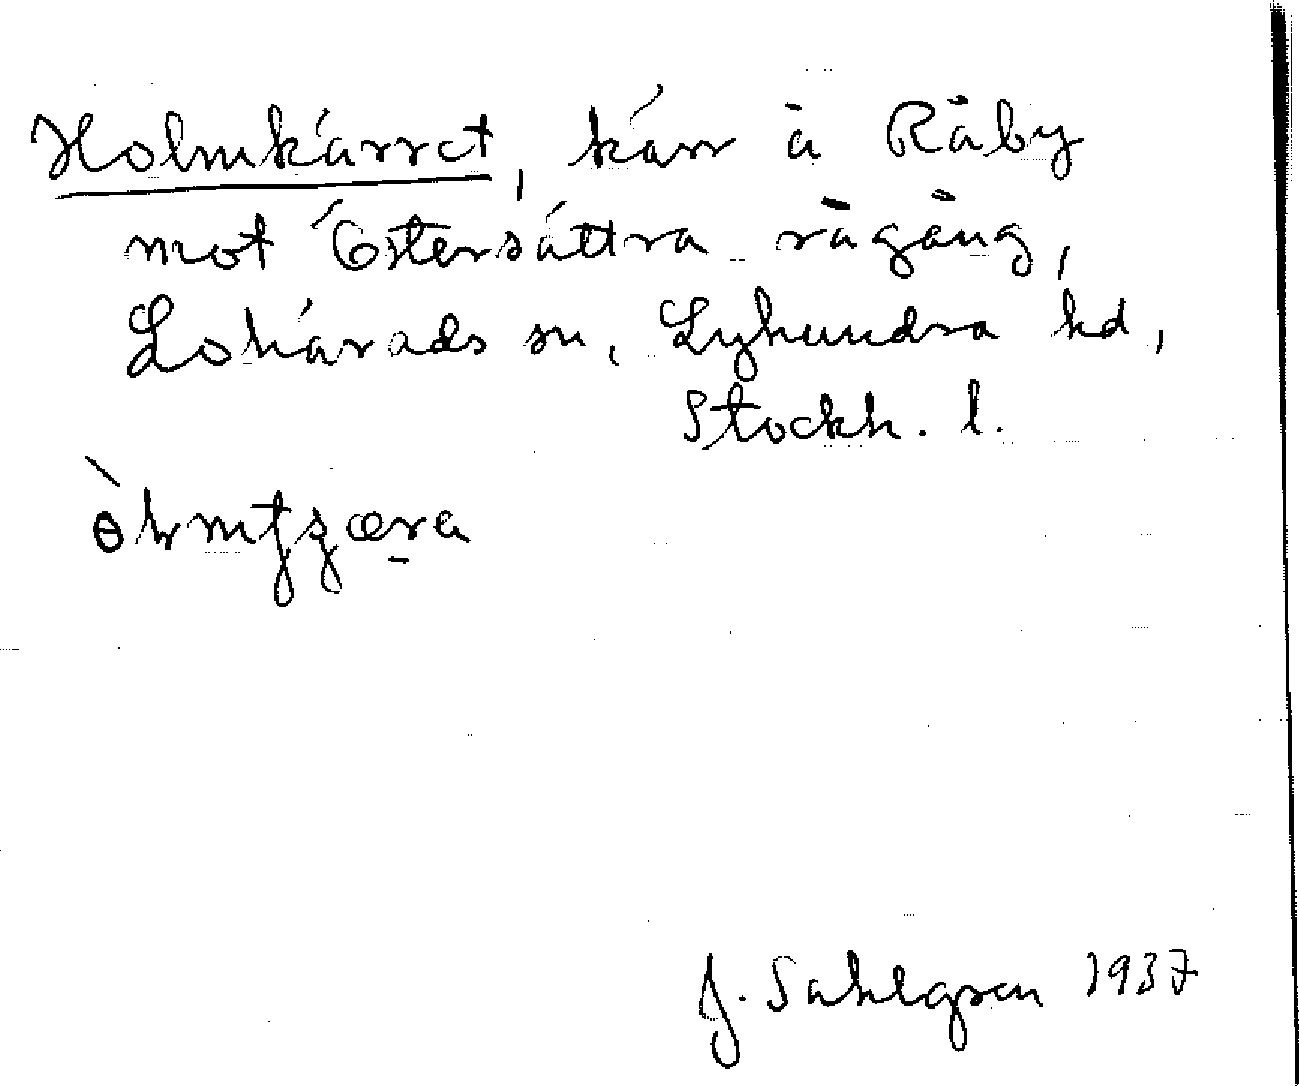 Holmkärret, kärr å Råby
mot Östersättra rågång,
Lohärads sn, Lyhundra hd,
Stockh. l.
J. Sahlgren 1937